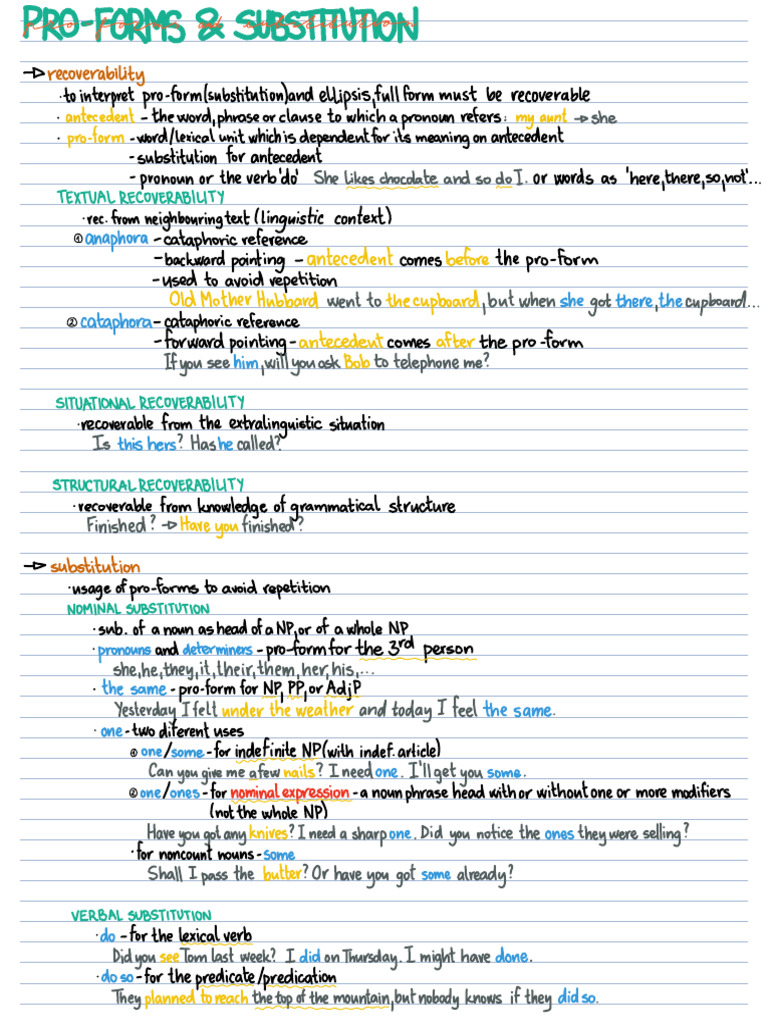 PRO-FORMS & SUBSTITUTION
pro-forms and substitution
→ recoverability
· to interpret pro-form(substitution) and ellipsis, full form must be recoverable
· antecedent - the word, phrase or clause to which a pronoun refers: my aunt → she
· pro-form - word/lexical unit which is dependent for its meaning on antecedent
- substitution for antecedent
- pronoun or the verb 'do' She likes chocolate and so do I. or words as 'here, there, so, not'...
TEXTUAL RECOVERABILITY
· rec. from neighbouring text (linguistic context)
① anaphora - cataphoric reference
- backward pointing - antecedent comes before the pro-form
- used to avoid repetition
Old Mother Hubbard went to the cupboard, but when she got there, the cupboard...
② cataphora - cataphoric reference
- forward pointing - antecedent comes after the pro-form
If you see him, will you ask Bob to telephone me?
SITUATIONAL RECOVERABILITY
· recoverable from the extralinguistic situation
Is this hers? Has he called?
STRUCTURAL RECOVERABILITY
· recoverable from knowledge of grammatical structure
Finished? → Have you finished?
→ substitution
· usage of pro-forms to avoid repetition
NOMINAL SUBSTITUTION
· sub. of a noun as head of a NP, or of a whole NP
· pronouns and determiners - pro-form for the 3rd person
she, he, they, it, their, them, her, his, ...
· the same - pro-form for NP, PP, or AdjP
Yesterday I felt under the weather and today I feel the same.
· one - two diferent uses
① one/some - for indefinite NP (with indef. article)
Can you give me a few nails? I need one. I'll get you some.
② one/ones - for nominal expression - a noun phrase head with or without one or more modifiers
(not the whole NP)
Have you got any knives? I need a sharp one. Did you notice the ones they were selling?
· for noncount nouns - some
Shall I pass the butter? Or have you got some already?
VERBAL SUBSTITUTION
· do - for the lexical verb
Did you see Tom last week? I did on Thursday. I might have done.
· do so - for the predicate/predication
They planned to reach the top of the mountain, but nobody knows if they did so.